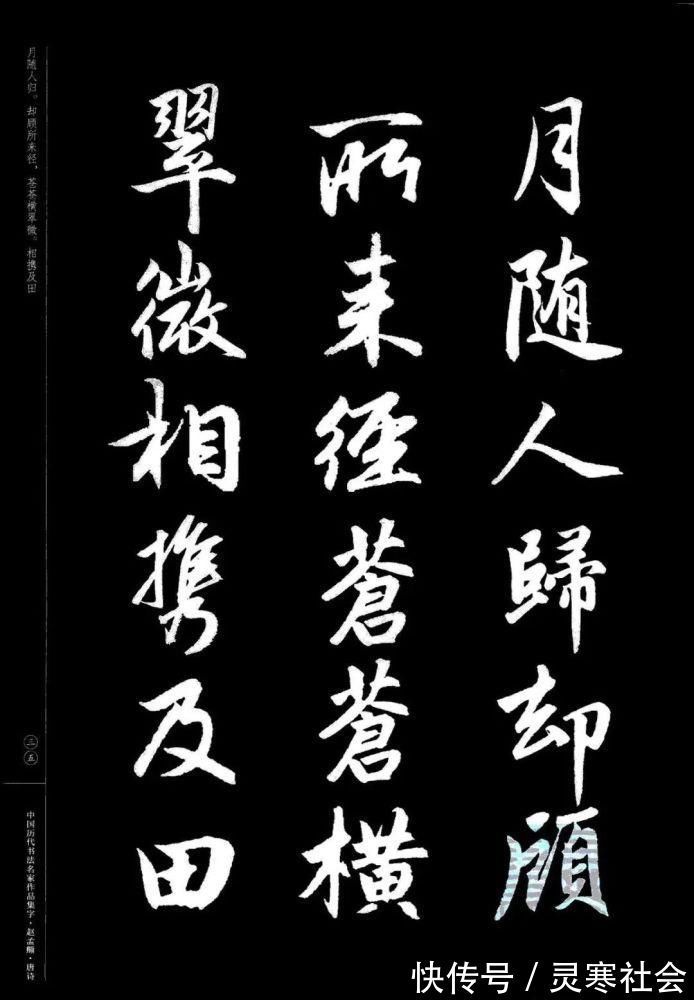 月随人歸却顧
所来徑蒼蒼橫
翠微相携及田
月随人归。却顾所来径，苍苍横翠微。相携及田
三五
中国历代书法名家作品集字·赵孟頫·唐诗
快传号/灵寒社会